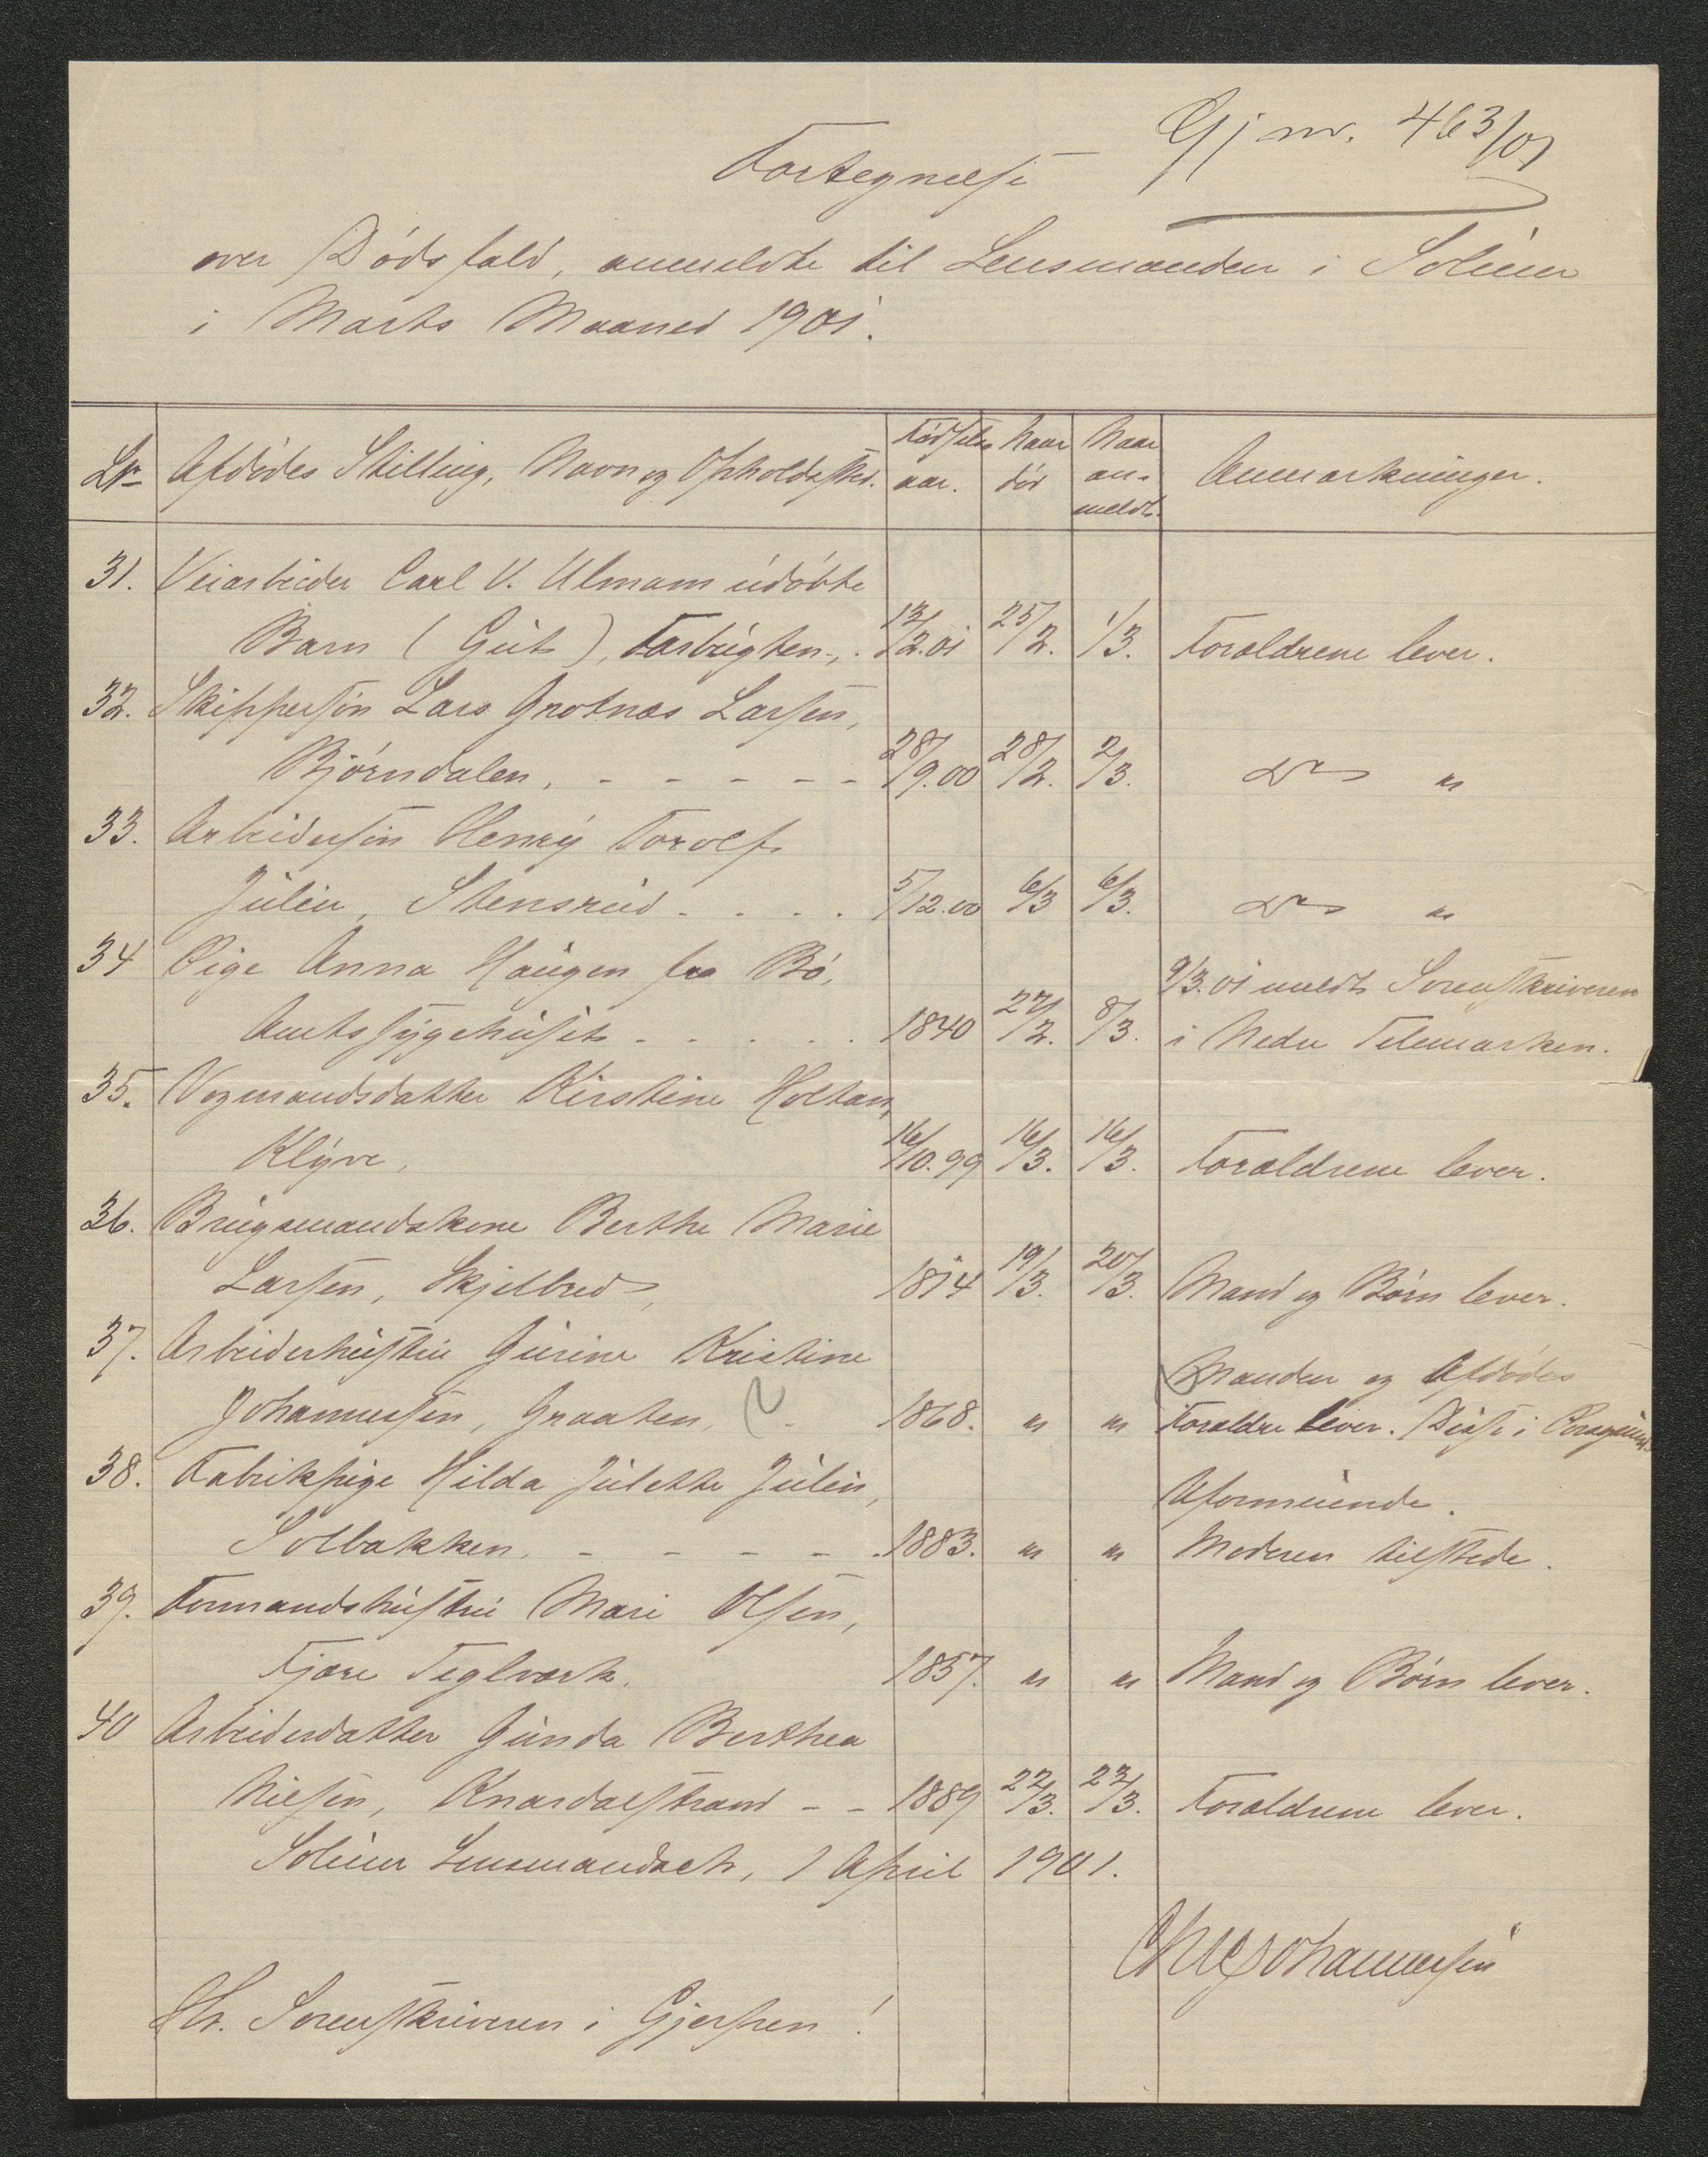 Gj nr. 463/01
Fortegnelse
over Dødsfald, anmeldte til Lensmanden i Solum
i Marts Maaned 1901.
Lr Afdødes Stilling, Navn og Opholdssted. Fødsels aar. Naar død Naar an- meldt. Anmærkninger.
31. Veiarbeider Carl V. Ulmam udøbte
Barn (Gut), Farbugten, 13/2.01 25/2. 1/3. Forældrene lever.
32. Skippersøn Lars Grotnæs Larsen,
Bjørndalen, - - - - - 28/9.00 28/2. 2/3. Do "
33. Arbeidersøn Henry Torolf
Julin, Stensrud. . . . 5/12.00 6/3 6/3. Do "
34 Pige Anna Haugen fra Bø, 9/3.01 meldt Sorenskriveren
Amtssygehuset - - . . . 1840 27/2. 8/3. i Nedre Telemarken.
35. Vognmandsdatter Kirstine Holtan,
Klyve, 16/10.99 16/3. 16/3. Forældrene lever.
36. Brugsmandskone Berthe Marie
Larsen, Skjelbred, 1874 19/3. 20/3. Mand og Børn lever.
37. Arbeiderhustru Gurine Kristine Manden og Afdødes
Johannessen, Graaten, 1868. " " Forældre lever. Disse i Porsgrund
38. Fabrikpige Hilda Julette Julin, Uformuende.
Solbakken. - - - - - 1883. " " Moderen tilstede.
39. Formandshustru Mari Olsen,
Fjære Teglværk. 1857. " " Mand og Børn lever.
40 Arbeiderdatter Gunda Berthea
Nilsen, Knardalstrand - - 1889 22/3. 23/3. Forældrene lever.
Solum Lensmandset, 1 April 1901.
Johannessen
Hr. Sorenskriveren i Gjerpen!